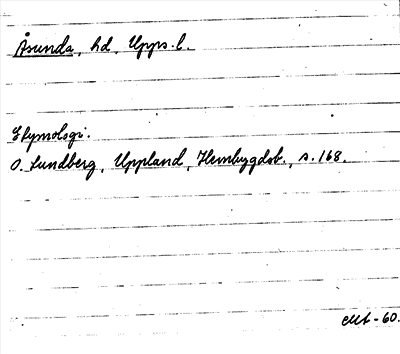 Åsunda, hd, Upps. l.
Etymologi.
O. Lundberg, Uppland, Hembygdsb., s. 168.
-60.